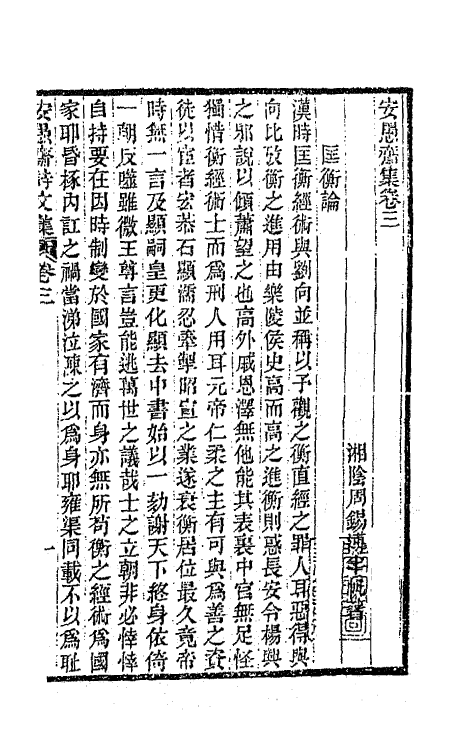 安愚齋集卷三
湘陰周錫
匡衡論
漢時匡衡經術與劉向並稱以予觀之衡直經之罪人耳惡得與
向比攷衡之進用由樂陵侯史高而高之進衡則惑長安令楊興
之邪說以傾蕭望之也高外戚恩澤無他能其表裏中官無足怪
獨惜衡經術士而爲刑人用耳元帝仁柔之主有可與爲善之資
徒以宦者宏恭石顯濡忍牽掣昭宣之業遂衰衡居位最久竟帝
時無一言及顯嗣皇更化顯去中書始以一劾謝天下終身依倚
一朝反噬雖微王尊言豈能逃萬世之議哉士之立朝非必悻悻
自持要在因時制變於國家有濟而身亦無所苟衡之經術爲國
家耶昏椓内訌之禍當涕泣陳之以爲身耶雍渠同載不以爲恥
安愚齋詩文集 卷三 一